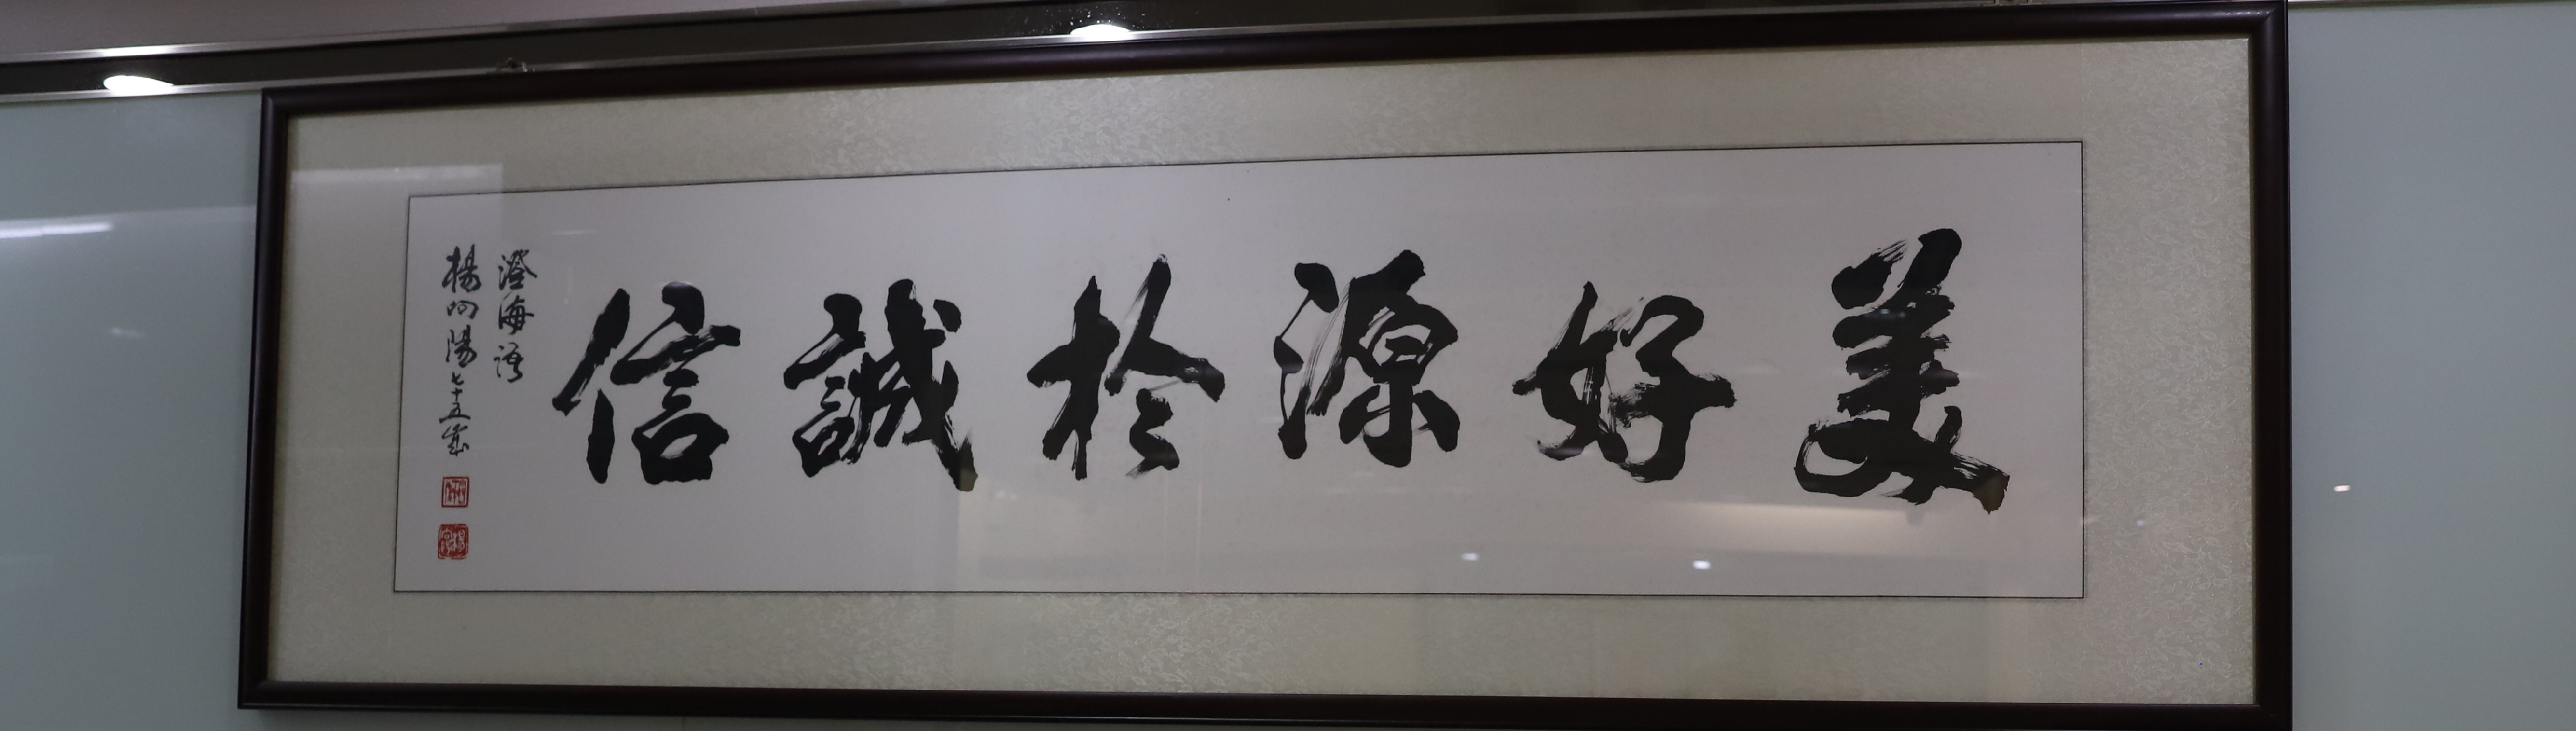 美好源於誠信
澄海語
楊向陽七十五歲